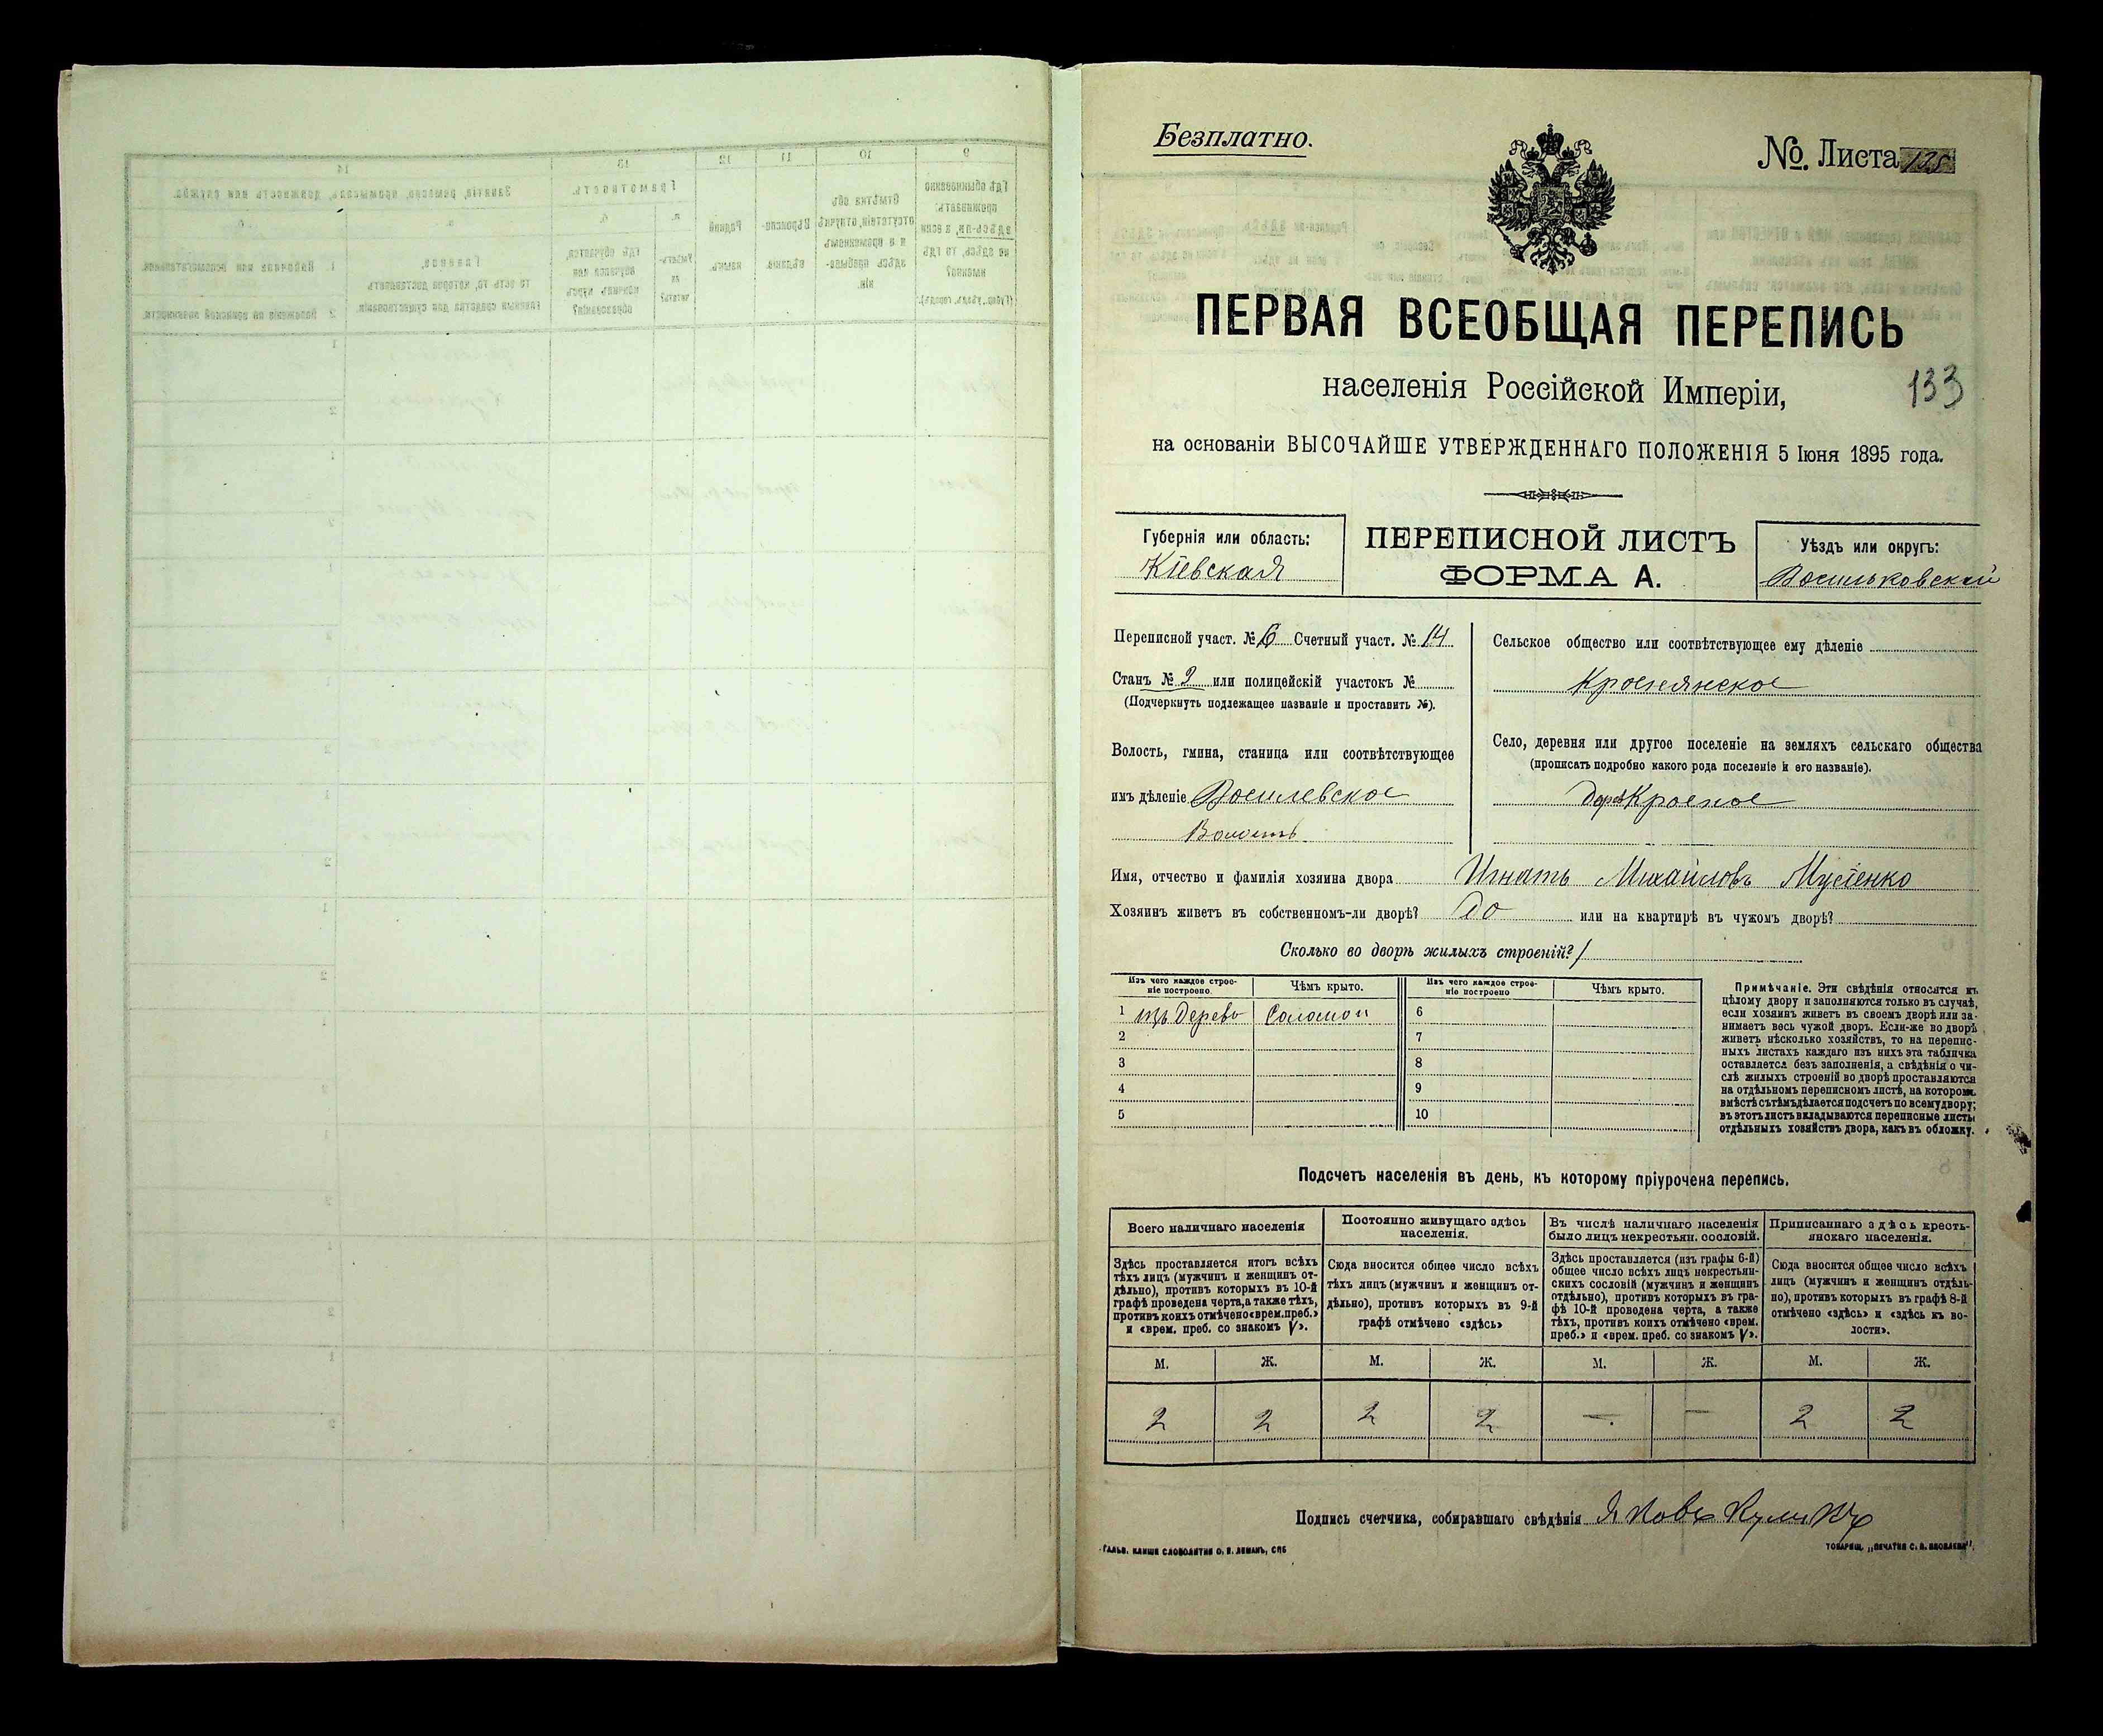 Безплатно.
№ Листа 128
ПЕРВАЯ ВСЕОБЩАЯ ПЕРЕПИСЬ
населенія Россійской Имперіи,
133
на основаніи ВЫСОЧАЙШЕ УТВЕРЖДЕННАГО ПОЛОЖЕНІЯ 5 Іюня 1895 года.
Губернія или область:
Кіевская
ПЕРЕПИСНОЙ ЛИСТЪ
ФОРМА А.
Уѣздъ или округъ:
Васильковскій
Переписной участ. № 6 Счетный участ. № 14
Станъ № 2 или полицейскій участокъ №
(Подчеркнуть подлежащее названіе и проставить №).
Волость, гмина, станица или соотвѣтствующее
имъ дѣленіе Василевское
Волость
Сельское общество или соотвѣтствующее ему дѣленіе
Краснянское
Село, деревня или другое поселеніе на земляхъ сельскаго общества
(прописать подробно какого рода поселеніе и его названіе).
дер. Красное
Имя, отчество и фамилія хозяина двора Игнатъ Михайловъ Мусіенко
Хозяинъ живетъ въ собственномъ-ли дворѣ? да или на квартирѣ въ чужомъ дворѣ?
Сколько во дворѣ жилыхъ строеній? 1
Изъ чего каждое строе-
ніе построено.
Чѣмъ крыто.
Изъ чего каждое строе-
ніе построено
Чѣмъ крыто.
1 изъ дерева Соломои 6
2 7
3 8
4 9
5 10
Примѣчаніе. Эти свѣдѣнія относятся къ
цѣлому двору и заполняются только въ случаѣ,
если хозяинъ живетъ въ своемъ дворѣ или за-
нимаетъ весь чужой дворъ. Если-же во дворѣ
живетъ нѣсколько хозяйствъ, то на перепис-
ныхъ листахъ каждаго изъ нихъ эта табличка
оставляется безъ заполненія, а свѣдѣнія о чи-
слѣ жилыхъ строеній во дворѣ проставляются
на отдѣльномъ переписномъ листѣ, на которомъ
вмѣстѣ съ тѣмъ дѣлается подсчетъ по всему двору;
въ этотъ листъ вкладываются переписные листы
отдѣльныхъ хозяйствъ двора, какъ въ обложку.
Подсчетъ населенія въ день, къ которому пріурочена перепись.
Всего наличнаго населенія
Постоянно живущаго здѣсь
населенія.
Въ числѣ наличнаго населенія
было лицъ некрестьян. сословій.
Приписаннаго здѣсь кресть-
янскаго населенія.
Здѣсь проставляется итогъ всѣхъ
тѣхъ лицъ (мужчинъ и женщинъ от-
дѣльно), противъ которыхъ въ 10-й
графѣ проведена черта, а также тѣхъ,
противъ коихъ отмѣчено «врем. преб.»
и «врем. преб. со знакомъ V».
Сюда вносится общее число всѣхъ
тѣхъ лицъ (мужчинъ и женщинъ от-
дѣльно), противъ которыхъ въ 9-й
графѣ отмѣчено «здѣсь»
Здѣсь проставляется (изъ графы 6-й)
общее число всѣхъ лицъ некрестьян-
скихъ сословій (мужчинъ и женщинъ
отдѣльно), противъ которыхъ въ гра-
фѣ 10-й проведена черта, а также
тѣхъ, противъ коихъ отмѣчено «врем.
преб.» и «врем. преб. со знакомъ V».
Сюда вносится общее число всѣхъ
лицъ (мужчинъ и женщинъ отдѣль-
но), противъ которыхъ въ графѣ 8-й
отмѣчено «здѣсь» и «здѣсь къ во-
лости».
М. Ж. М. Ж. М. Ж. М. Ж.
2 2 2 2 — — 2 2
Подпись счетчика, собиравшаго свѣдѣнія Яковъ
ГАЛЬВ. КЛИШЕ СЛОВОЛИТНИ О. И. ЛЕМАНЪ, СПБ
ТОВАРИЩ. „ПЕЧАТНЯ С. П. ЯКОВЛЕВА".